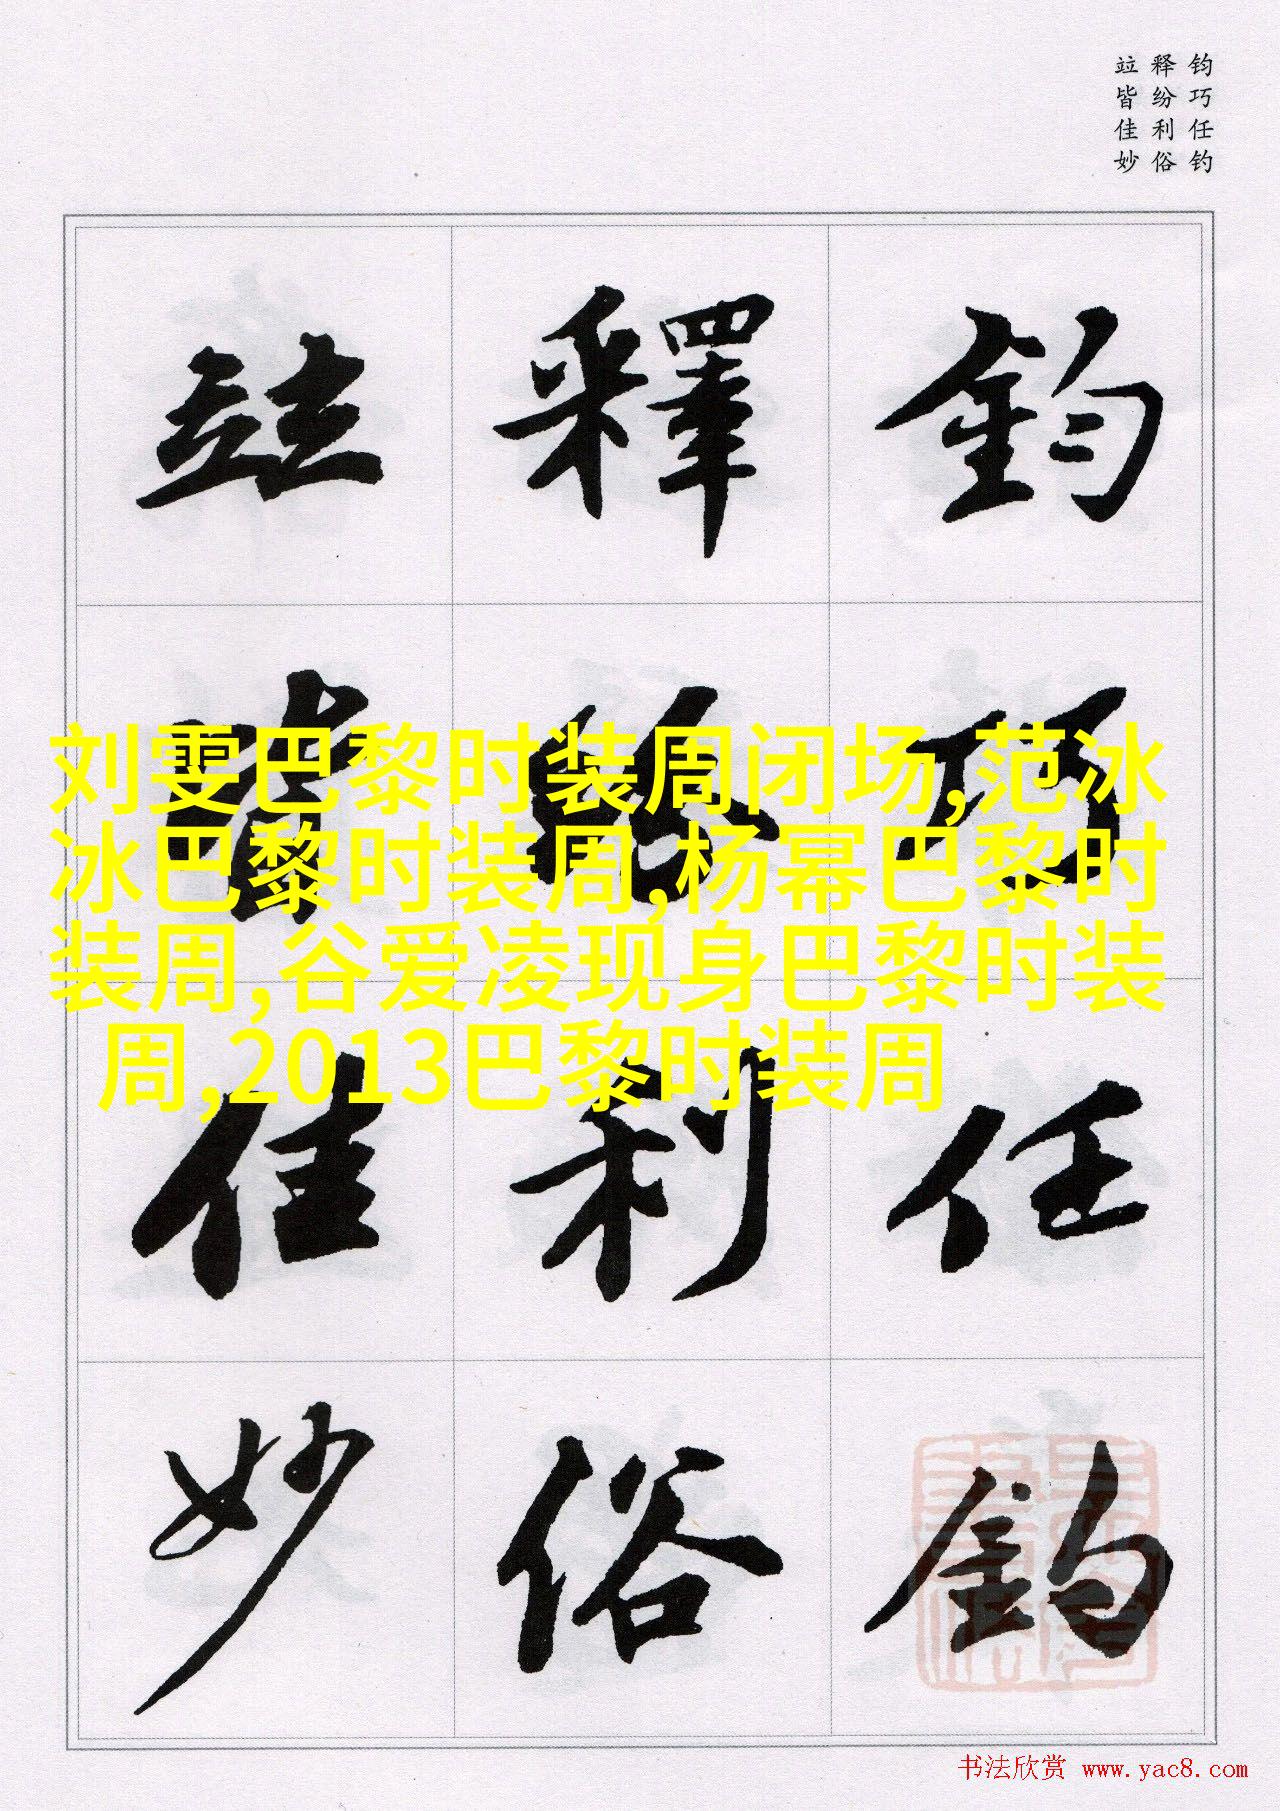 钧巧任钓
释纷利俗
竝皆佳妙
鈞 巧 任 釣
釋 紛 利 俗
竝 皆 佳 妙
刘雯巴黎时装周闭场,范冰
冰巴黎时装周,杨幂巴黎时
装周,谷爱凌现身巴黎时装
周,2013巴黎时装周
书法欣赏 www.yac8.com